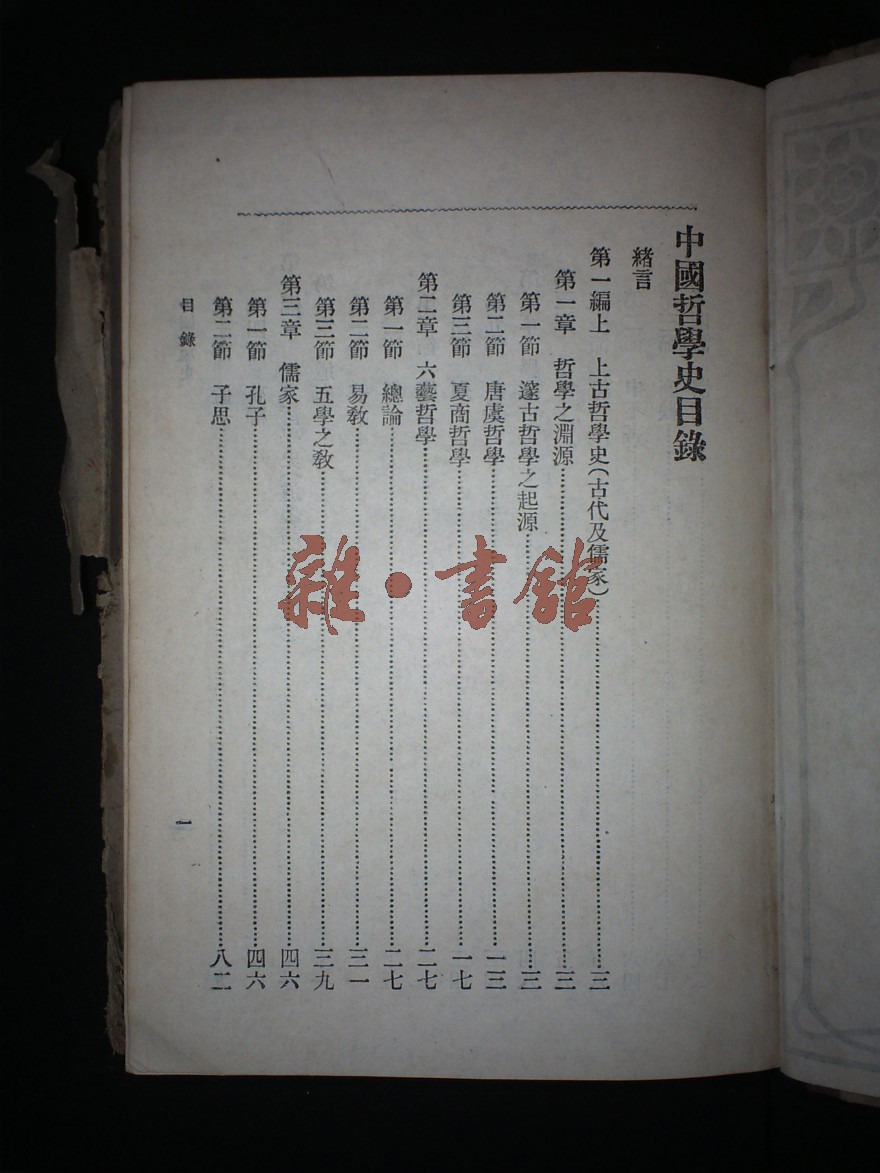 中國哲學史目錄
緒言
第一編上 上古哲學史(古代及儒家)……三
第一章 哲學之淵源……三
第一節 邃古哲學之起源……三
第二節 唐虞哲學……一三
第三節 夏商哲學……一七
第二章 六藝哲學……二七
第一節 總論……二七
第二節 易教……三一
第三節 五學之教……三九
第三章 儒家……四六
第一節 孔子……四六
第二節 子思……八二
目錄
一
雜·書館